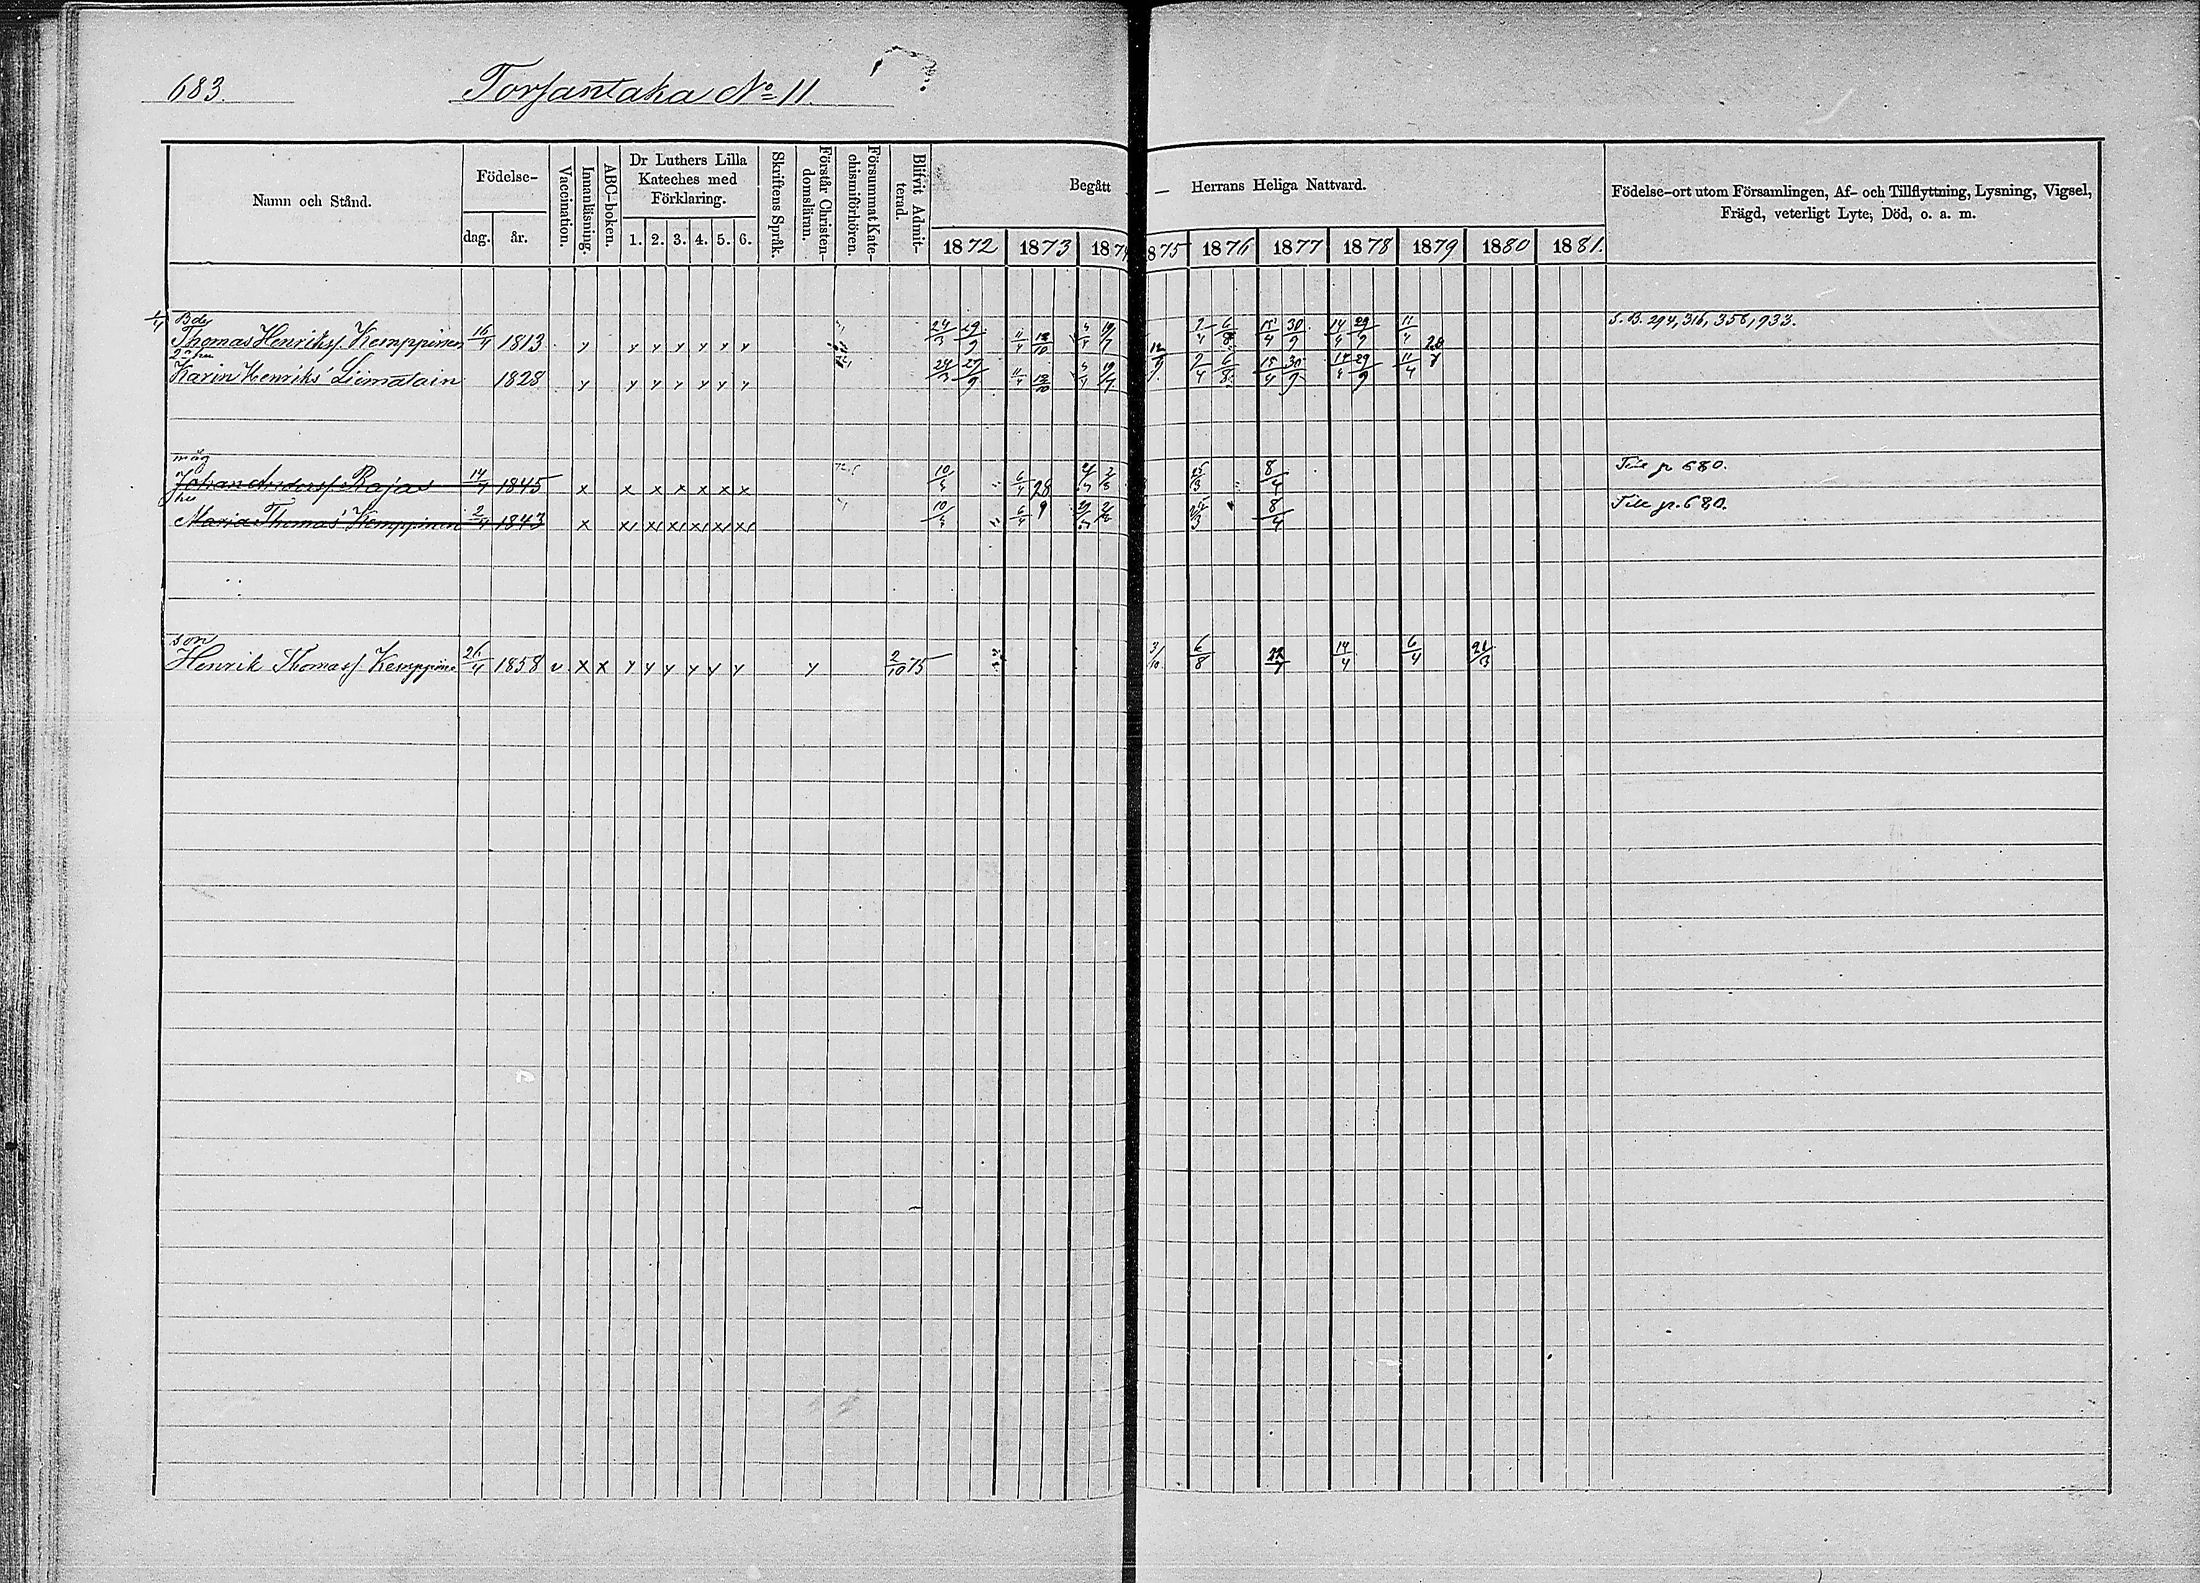 683. Torsantaka No 11.
Namn och Stånd. Födelse- dag. år. Vaccination. Innanläsning. ABC-boken. Dr Luthers Lilla Kateches med Förklaring. 1. 2. 3. 4. 5. 6. Skriftens Språk. Förstår Christendomsläran. Försummat Katechismiförhören. Blifvit Admitterad. Begått Herrans Heliga Nattvard. 1872 1873 1874 1875 1876 1877 1878 1879 1880 1881. Födelse-ort utom Församlingen, Af- och Tillflyttning, Lysning, Vigsel, Frägd, veterligt Lyte, Död, o. a. m.
Bde
Thomas Henrikss. Kemppinen 16/4 1813 y y y y y y y 24/3 29/9 11/4 12/10 19/7 12/9 2/4 6/8 15/4 30/9 14/4 29/9 11/4 S. B. 294, 316, 358, 933.
2a hu
Karin Henriks' Liimatain 1828 y y y y y y y 11/4 12/10 19/7 2/4 6/8 15/4 30/9 14/4 29/9 11/4
måg
Johan Anderss. Rajas 14/7 1845 x x x x x x x 10/3 6/4 28 25/3 8/4 Till p. 680.
hu
Maria Thomas' Kemppinen 2/4 1843 x x x x x x x 10/3 6/4 9 8/4 Till p. 680.
son
Henrik Thomass. Kemppine 26/4 1858 v x x y y y y y y y 2/10 75 3/10 6/8 22/7 14/4 6/4 21/3